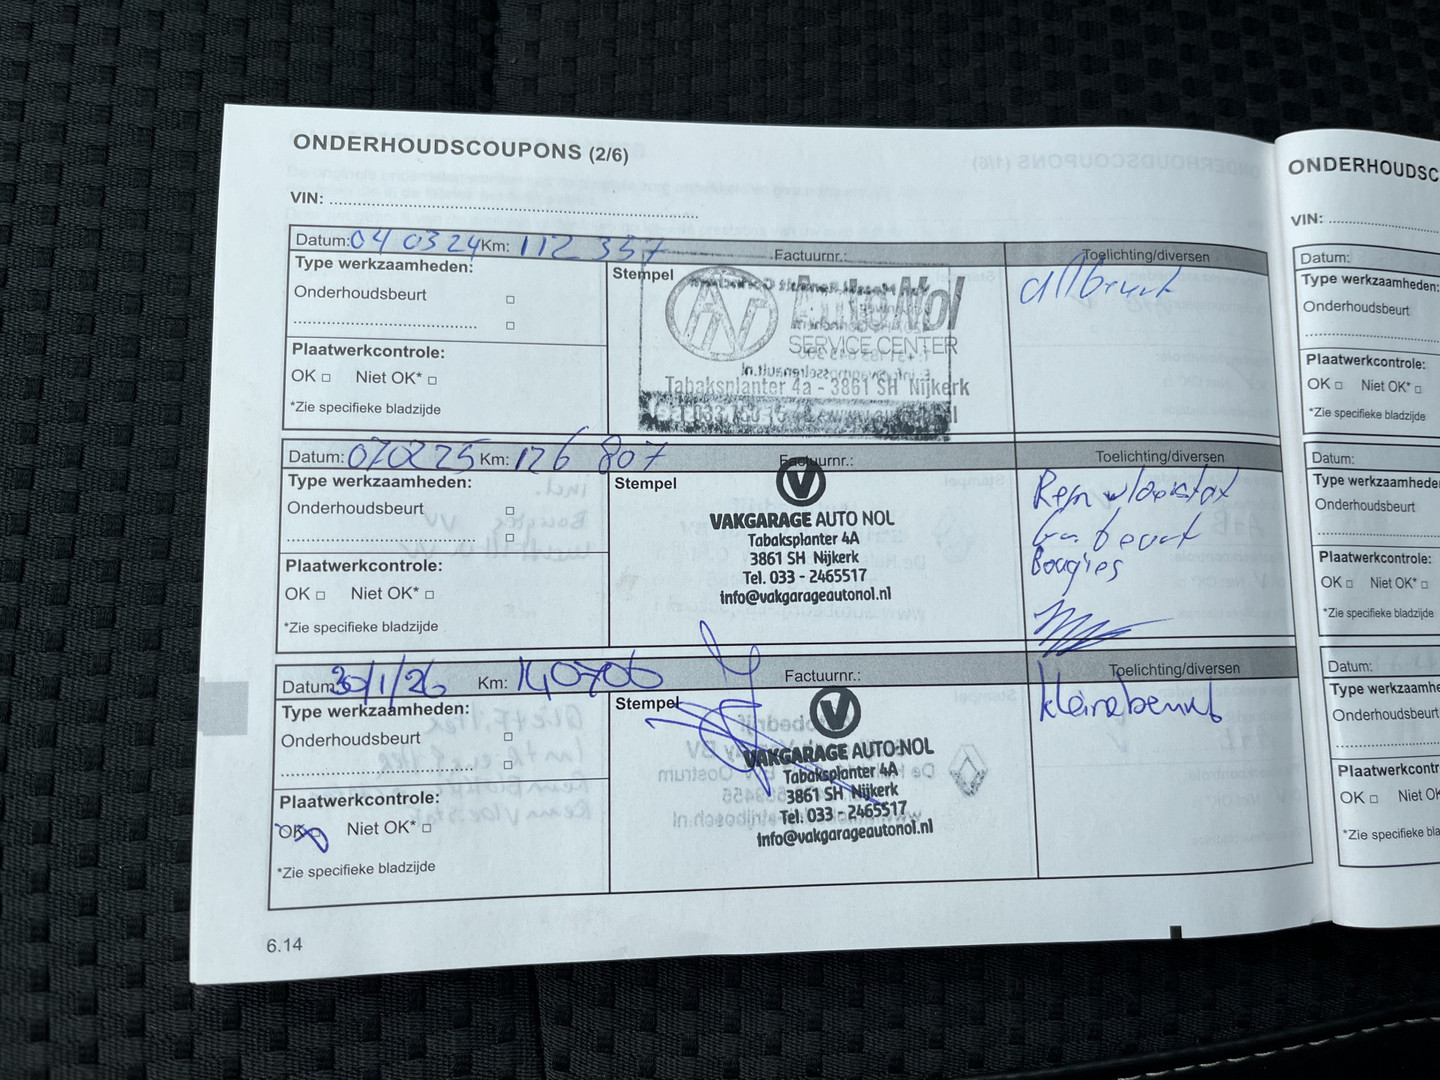 ONDERHOUDSCOUPONS (2/6)
VIN:
Datum: 04 03 24 Km: 112 357 Factuurnr.: Toelichting/diversen
Type werkzaamheden:
Stempel
Onderhoudsbeurt
Plaatwerkcontrole:
OK Niet OK*
*Zie specifieke bladzijde
AN
AutoNol
SERVICE CENTER
Tabaksplanter 4a - 3861 SH Nijkerk
Datum: 07 02 25 Km: 126 807 Factuurnr.: Toelichting/diversen
Type werkzaamheden:
Stempel
Onderhoudsbeurt
Plaatwerkcontrole:
OK Niet OK*
*Zie specifieke bladzijde
VAKGARAGE AUTO NOL
Tabaksplanter 4A
3861 SH Nijkerk
Tel. 033 - 2465517
info@vakgarageautonol.nl
Rem
beurt
Bougies
Datum: 30/1/26 Km: 140706 Factuurnr.: Toelichting/diversen
Type werkzaamheden:
Stempel
Onderhoudsbeurt
Plaatwerkcontrole:
OK Niet OK*
*Zie specifieke bladzijde
VAKGARAGE AUTO NOL
Tabaksplanter 4A
3861 SH Nijkerk
Tel. 033 - 2465517
info@vakgarageautonol.nl
kleine beurt
6.14
ONDERHOUDSC
VIN:
Datum:
Type werkzaamheden:
Onderhoudsbeurt
Plaatwerkcontrole:
OK Niet OK*
*Zie specifieke bladzijde
Datum:
Type werkzaamhede
Onderhoudsbeurt
Plaatwerkcontrole:
OK Niet OK*
*Zie specifieke bladzijde
Datum:
Type werkzaamhe
Onderhoudsbeurt
Plaatwerkcontr
OK Niet OK
*Zie specifieke bladz